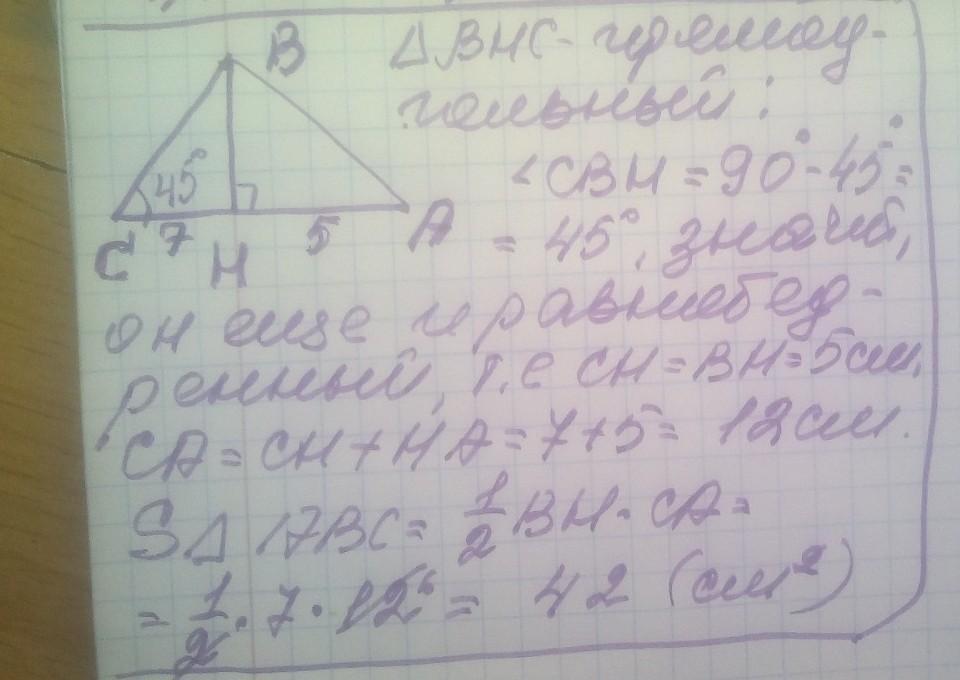 B
45°
C 7 H 5 A
△BHC - прямоу-
гольный:
∠CBH = 90° - 45° =
= 45°, значит,
он еще и равнобед-
ренный, т.е CH = BH = 5 см,
CA = CH + HA = 7 + 5 = 12 см.
S△ ABC = 1/2 BH · CA =
= 1/2 · 7 · 12 = 42 (см²)